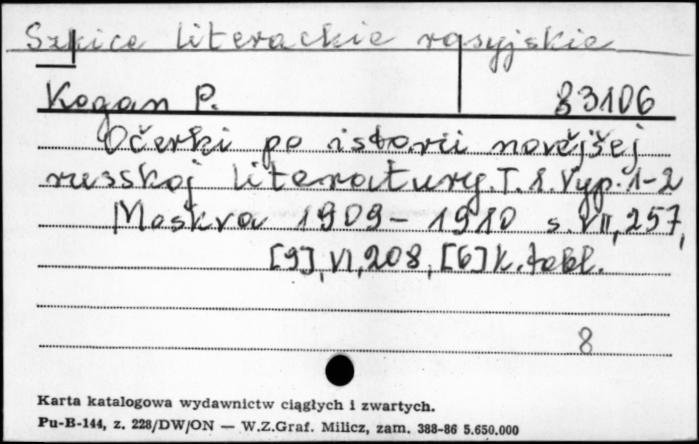 Szkice literackie rosyjskie
Kogan P. 83106
Očerki po istorii novějšej
russkoj literatury. T. 1. Vyp. 1-2
Moskva 1909-1910 s. VII, 257,
[9], VI, 208, [6] k. tabl.
8
Karta katalogowa wydawnictw ciągłych i zwartych.
Pu-B-144, z. 228/DW/ON — W.Z.Graf. Milicz, zam. 388-86 5.650.000